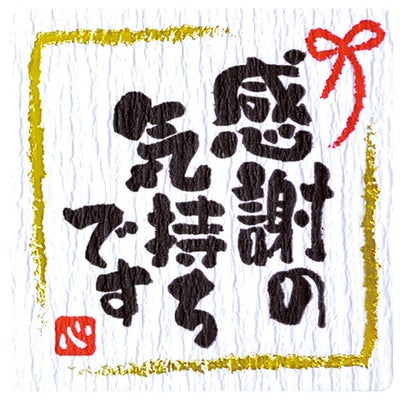 感謝の
気持ち
です
心